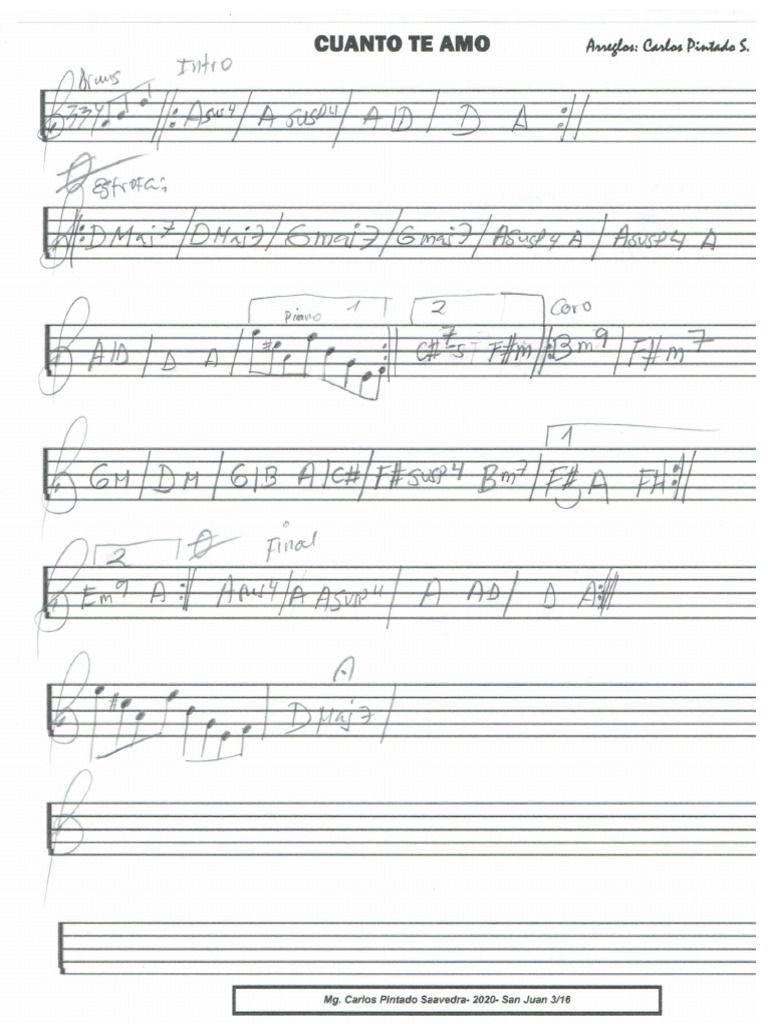 CUANTO TE AMO
Arreglos: Carlos Pintado S.
Drums Intro
Asus4 / A susp4 / A/D / D A
Estrofas
DMaj7 / DMaj7 / Gmaj7 / Gmaj7 / Asusp4 A / Asusp4 A
piano 1 2 Coro
A/D / D A C#7-5 F#m Bm9 / F#m7
1
GM / DM / G/B A/C# / F#susp4 Bm7 / F# A F#
2 Final
Em9 A Asus4 / A Asusp4 / A AD / D A
A
DMaj7
Mg. Carlos Pintado Saavedra- 2020- San Juan 3/16